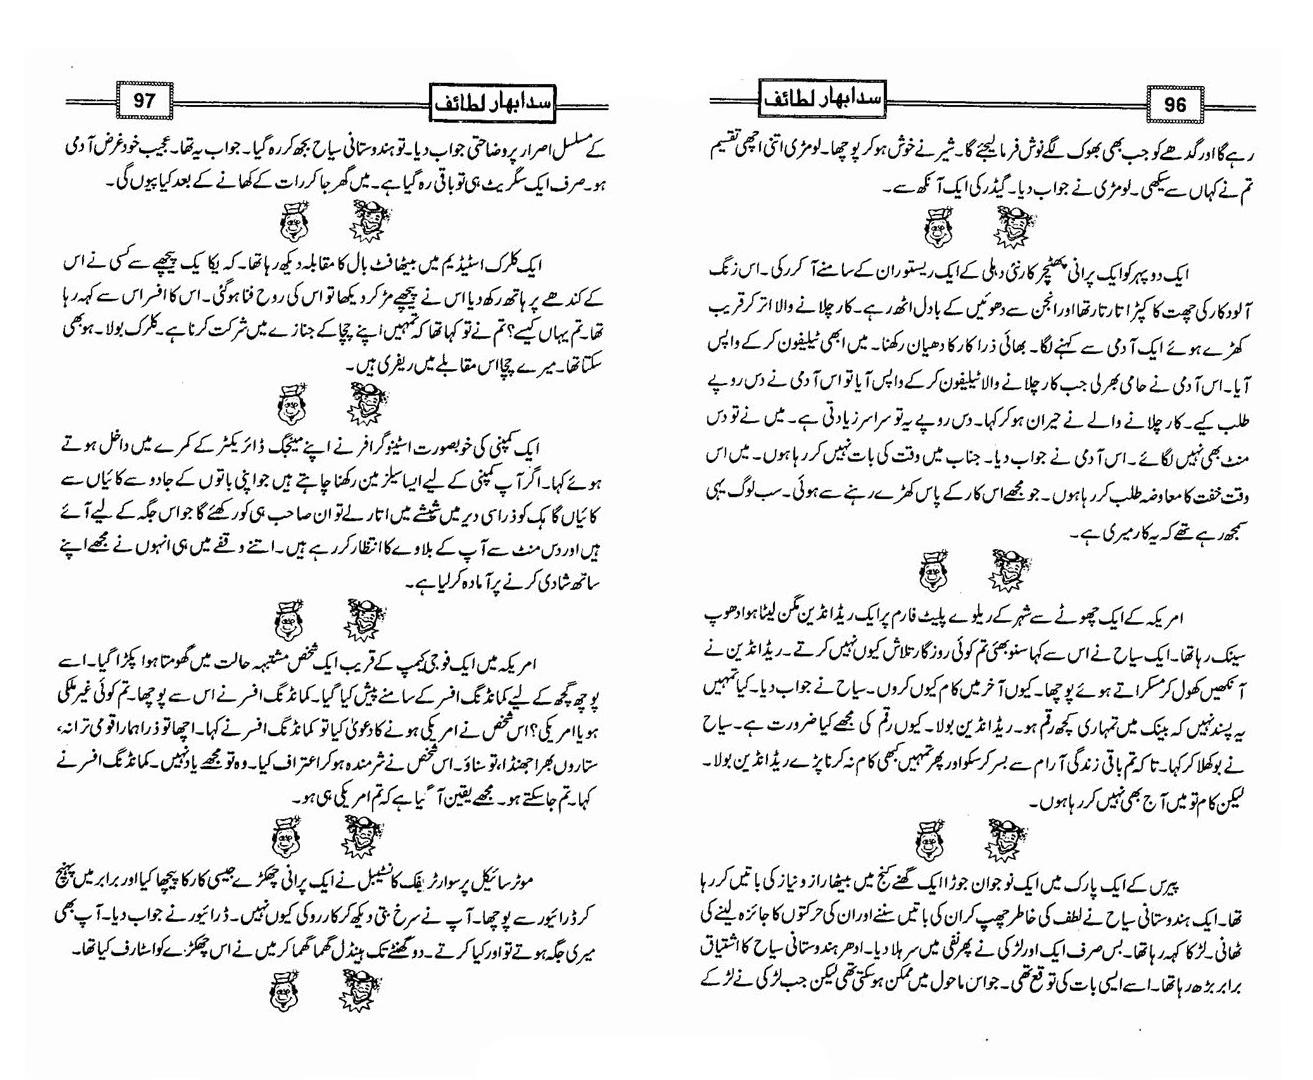 96
سدابہار لطائف
رہے گا اور گدھے کو جب بھی بھوک لگے نوش فرما لیجئے گا۔ شیر نے خوش ہو کر پوچھا۔ لومڑی اتنی اچھی تقسیم
تم نے کہاں سے سیکھی۔ لومڑی نے جواب دیا۔ گیڈر کی ایک آنکھ سے۔
ایک دوپہر کو ایک پرانی پھٹیچر کار نئی دہلی کے ایک ریستوران کے سامنے آ کر رکی۔ اس زنگ
آلود کار کی چھت کا کپڑا تار تار تھا اور انجن سے دھوئیں کے بادل اٹھ رہے۔ کار چلانے والا اتر کر قریب
کھڑے ہوئے ایک آدمی سے کہنے لگا۔ بھائی ذرا کار کا دھیان رکھنا۔ میں ابھی ٹیلیفون کر کے واپس
آیا۔ اس آدمی نے حامی بھر لی جب کار چلانے والا ٹیلیفون کر کے واپس آیا تو اس آدمی نے دس روپے
طلب کیے۔ کار چلانے والے نے حیران ہو کر کہا۔ دس روپے یہ تو سراسر زیادتی ہے۔ میں نے تو دس
منٹ بھی نہیں لگائے۔ اس آدمی نے جواب دیا۔ جناب میں وقت کی بات نہیں کر رہا ہوں۔ میں اس
وقت خفت کا معاوضہ طلب کر رہا ہوں۔ جو مجھے اس کار کے پاس کھڑے رہنے سے ہوئی۔ سب لوگ یہی
سمجھ رہے تھے کہ یہ کار میری ہے۔
امریکہ کے ایک چھوٹے سے شہر کے ریلوے پلیٹ فارم پر ایک ریڈ انڈین مگن لیٹا ہوا دھوپ
سینک رہا تھا۔ ایک سیاح نے اس سے کہا سنو بھئی تم کوئی روزگار تلاش کیوں نہیں کرتے۔ ریڈ انڈین نے
آنکھیں کھول کر مسکراتے ہوئے پوچھا۔ کیوں آخر میں کام کیوں کروں۔ سیاح نے جواب دیا۔ کیا تمہیں
یہ پسند نہیں کہ بینک میں تمہاری کچھ رقم ہو۔ ریڈ انڈین بولا۔ کیوں رقم کی مجھے کیا ضرورت ہے۔ سیاح
نے بوکھلا کر کہا۔ تا کہ تم باقی زندگی آرام سے بسر کر سکو اور پھر تمہیں کبھی کام نہ کرنا پڑے ریڈ انڈین بولا۔
لیکن کام تو میں آج بھی نہیں کر رہا ہوں۔
پیرس کے ایک پارک میں ایک نوجوان جوڑا ایک گھنے کنج میں بیٹھا راز و نیاز کی باتیں کر رہا
تھا۔ ایک ہندوستانی سیاح نے لطف کی خاطر چھپ کر ان کی باتیں سننے اور ان کی حرکتوں کا جائزہ لینے کی
ٹھانی۔ لڑکا کہہ رہا تھا۔ بس صرف ایک اور لڑکی نے پھر نفی میں سر ہلا دیا۔ ادھر ہندوستانی سیاح کا اشتیاق
برابر بڑھ رہا تھا۔ اسے ایسی بات کی توقع تھی۔ جو اس ماحول میں ممکن ہو سکتی تھی لیکن جب لڑکی نے لڑکے
سدابہار لطائف
97
کے مسلسل اصرار پر وضاحتی جواب دیا۔ تو ہندوستانی سیاح بجھ کر رہ گیا۔ جواب یہ تھا۔ عجیب خود غرض آدمی
ہو۔ صرف ایک سگریٹ ہی تو باقی رہ گیا ہے۔ میں گھر جا کر رات کے کھانے کے بعد کیا پیوں گی۔
ایک کلرک اسٹیڈیم میں بیٹھا فٹ بال کا مقابلہ دیکھ رہا تھا۔ کہ یکایک پیچھے سے کسی نے اس
کے کندھے پر ہاتھ رکھ دیا اس نے پیچھے مڑ کر دیکھا تو اس کی روح فنا ہوگئی۔ اس کا افسر اس سے کہہ رہا
تھا۔ تم یہاں کیسے؟ تم نے تو کہا تھا کہ تمہیں اپنے چچا کے جنازے میں شرکت کرنا ہے۔ کلرک بولا۔ ہو بھی
سکتا تھا۔ میرے چچا اس مقابلے میں ریفری ہیں۔
ایک کمپنی کی خوبصورت اسٹینوگرافر نے اپنے مینجنگ ڈائریکٹر کے کمرے میں داخل ہوتے
ہوئے کہا۔ اگر آپ کمپنی کے لیے ایسا سیلز مین رکھنا چاہتے ہیں جو اپنی باتوں کے جادو سے کائیاں سے
کائیاں گاہک کو ذرا سی دیر میں شیشے میں اتار لے تو ان صاحب ہی کو رکھئے گا جو اس جگہ کے لیے آئے
ہیں اور دس منٹ سے آپ کے بلاوے کا انتظار کر رہے ہیں۔ اتنے وقفے میں ہی انہوں نے مجھے اپنے
ساتھ شادی کرنے پر آمادہ کر لیا ہے۔
امریکہ میں ایک فوجی کیمپ کے قریب ایک شخص مشتبہ حالت میں گھومتا ہوا پکڑا گیا۔ اسے
پوچھ گچھ کے لیے کمانڈنگ افسر کے سامنے پیش کیا گیا۔ کمانڈنگ افسر نے اس سے پوچھا۔ تم کوئی غیر ملکی
ہو یا امریکی؟ اس شخص نے امریکی ہونے کا دعویٰ کیا تو کمانڈنگ افسر نے کہا۔ اچھا تو ذرا ہمارا قومی ترانہ،
ستاروں بھرا جھنڈا، تو سناؤ۔ اس شخص نے شرمندہ ہو کر اعتراف کیا۔ وہ تو مجھے یاد نہیں۔ کمانڈنگ افسر نے
کہا۔ تم جا سکتے ہو۔ مجھے یقین آ گیا ہے کہ تم امریکی ہی ہو۔
موٹر سائیکل پر سوار ٹریفک کانسٹیبل نے ایک پرانی چھکڑے جیسی کار کا پیچھا کیا اور برابر میں پہنچ
کر ڈرائیور سے پوچھا۔ آپ نے سرخ بتی دیکھ کر کار روکی کیوں نہیں۔ ڈرائیور نے جواب دیا۔ آپ بھی
میری جگہ ہوتے تو اور کیا کرتے۔ دو گھنٹے تک ہینڈل گھما گھما کر میں نے اس چھکڑے کو اسٹارٹ کیا تھا۔